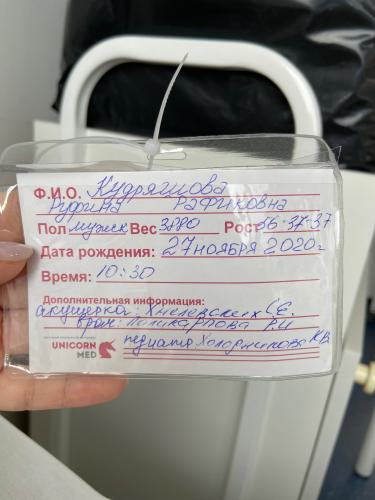 Ф.И.О. Кудряшова
Руфина Рафиковна
Пол мужск Вес 3880 Рост 56-37-37
Дата рождения: 27 ноября 2020г
Время: 10:30
Дополнительная информация:
акушерка: Хмелевских С.Е.
врач: Поликарпова РИ
UNICORN
MED
педиатр Холодникова К.В.